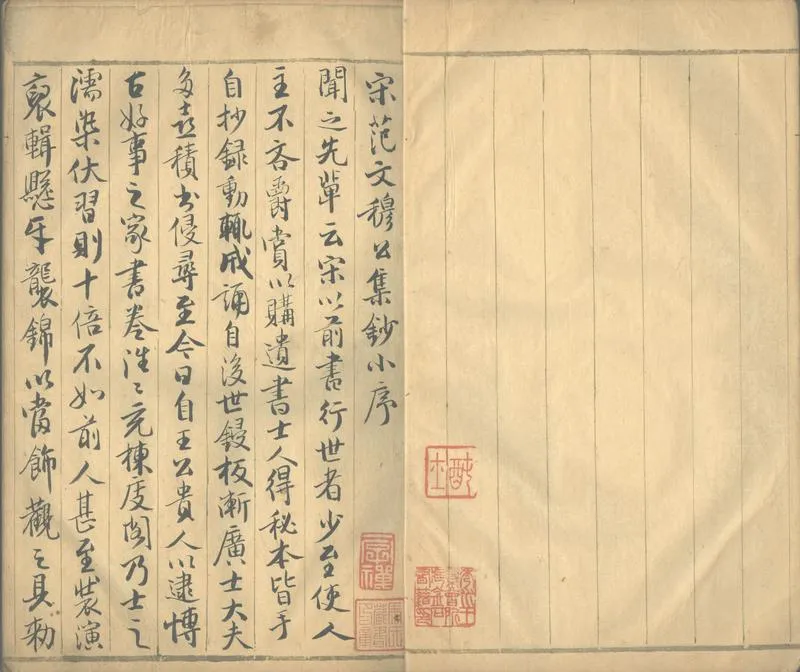 宋范文穆公集鈔小序
聞之先輩云宋以前書行世者少至使人
主不吝爵賞以購遺書士人得秘本皆手
自抄録動輒成誦自後世鋟板漸廣士大夫
多喜積書侵尋至今日自王公貴人以逮博
古好事之家書卷往〻充棟庋閣乃士之
濡染伏習則十倍不如前人甚至裝演
裒輯懸牙襲錦以當飾觀之具勅